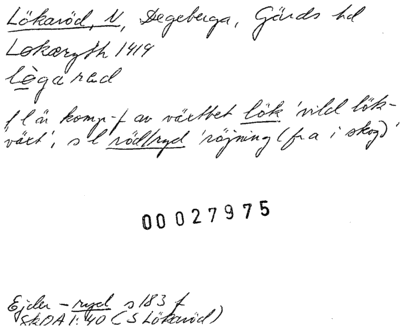 Lökaröd, N, Degeberga, Gärds hd
Lokaryth 1419
lögarad
f l är komp-f av växtbet lök 'vild lök-
växt', s l röd/ryd 'röjning (fr a i skog)'
00 027975
Ejder - ryd s 183 f
SkOA 1:40 (S Lökaröd)